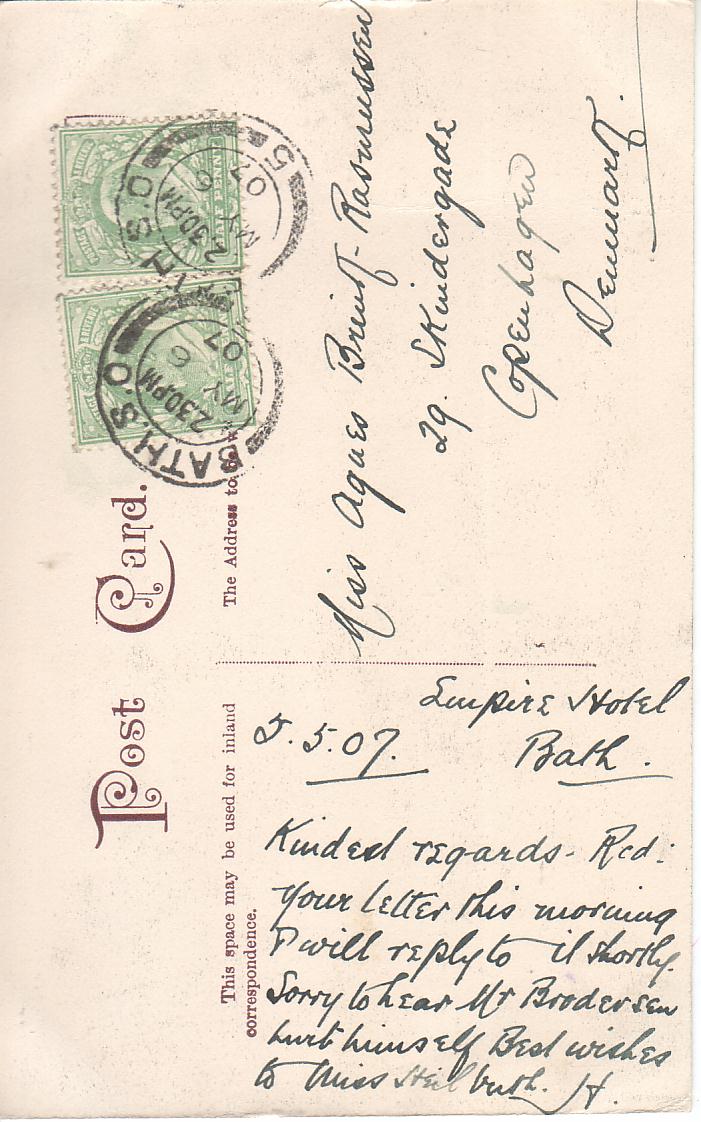 Post Card.
This space may be used for inland
correspondence.
The Address to be w
HALF PENNY
BATH. S.O
2.30PM
MY 6
07
5
BATH S.O
2.30PM
MY 6
07
5.5.07.
Empire Hotel
Bath.
Kindest regards - Rcd:
your letter this morning
I will reply to it shortly.
Sorry to hear Mr Brodersen
hurt himself Best wishes
to Miss Heilbuth. H.
Miss Agnes Brink-Rasmussen
29. Skindergade
Copenhagen
Denmark.